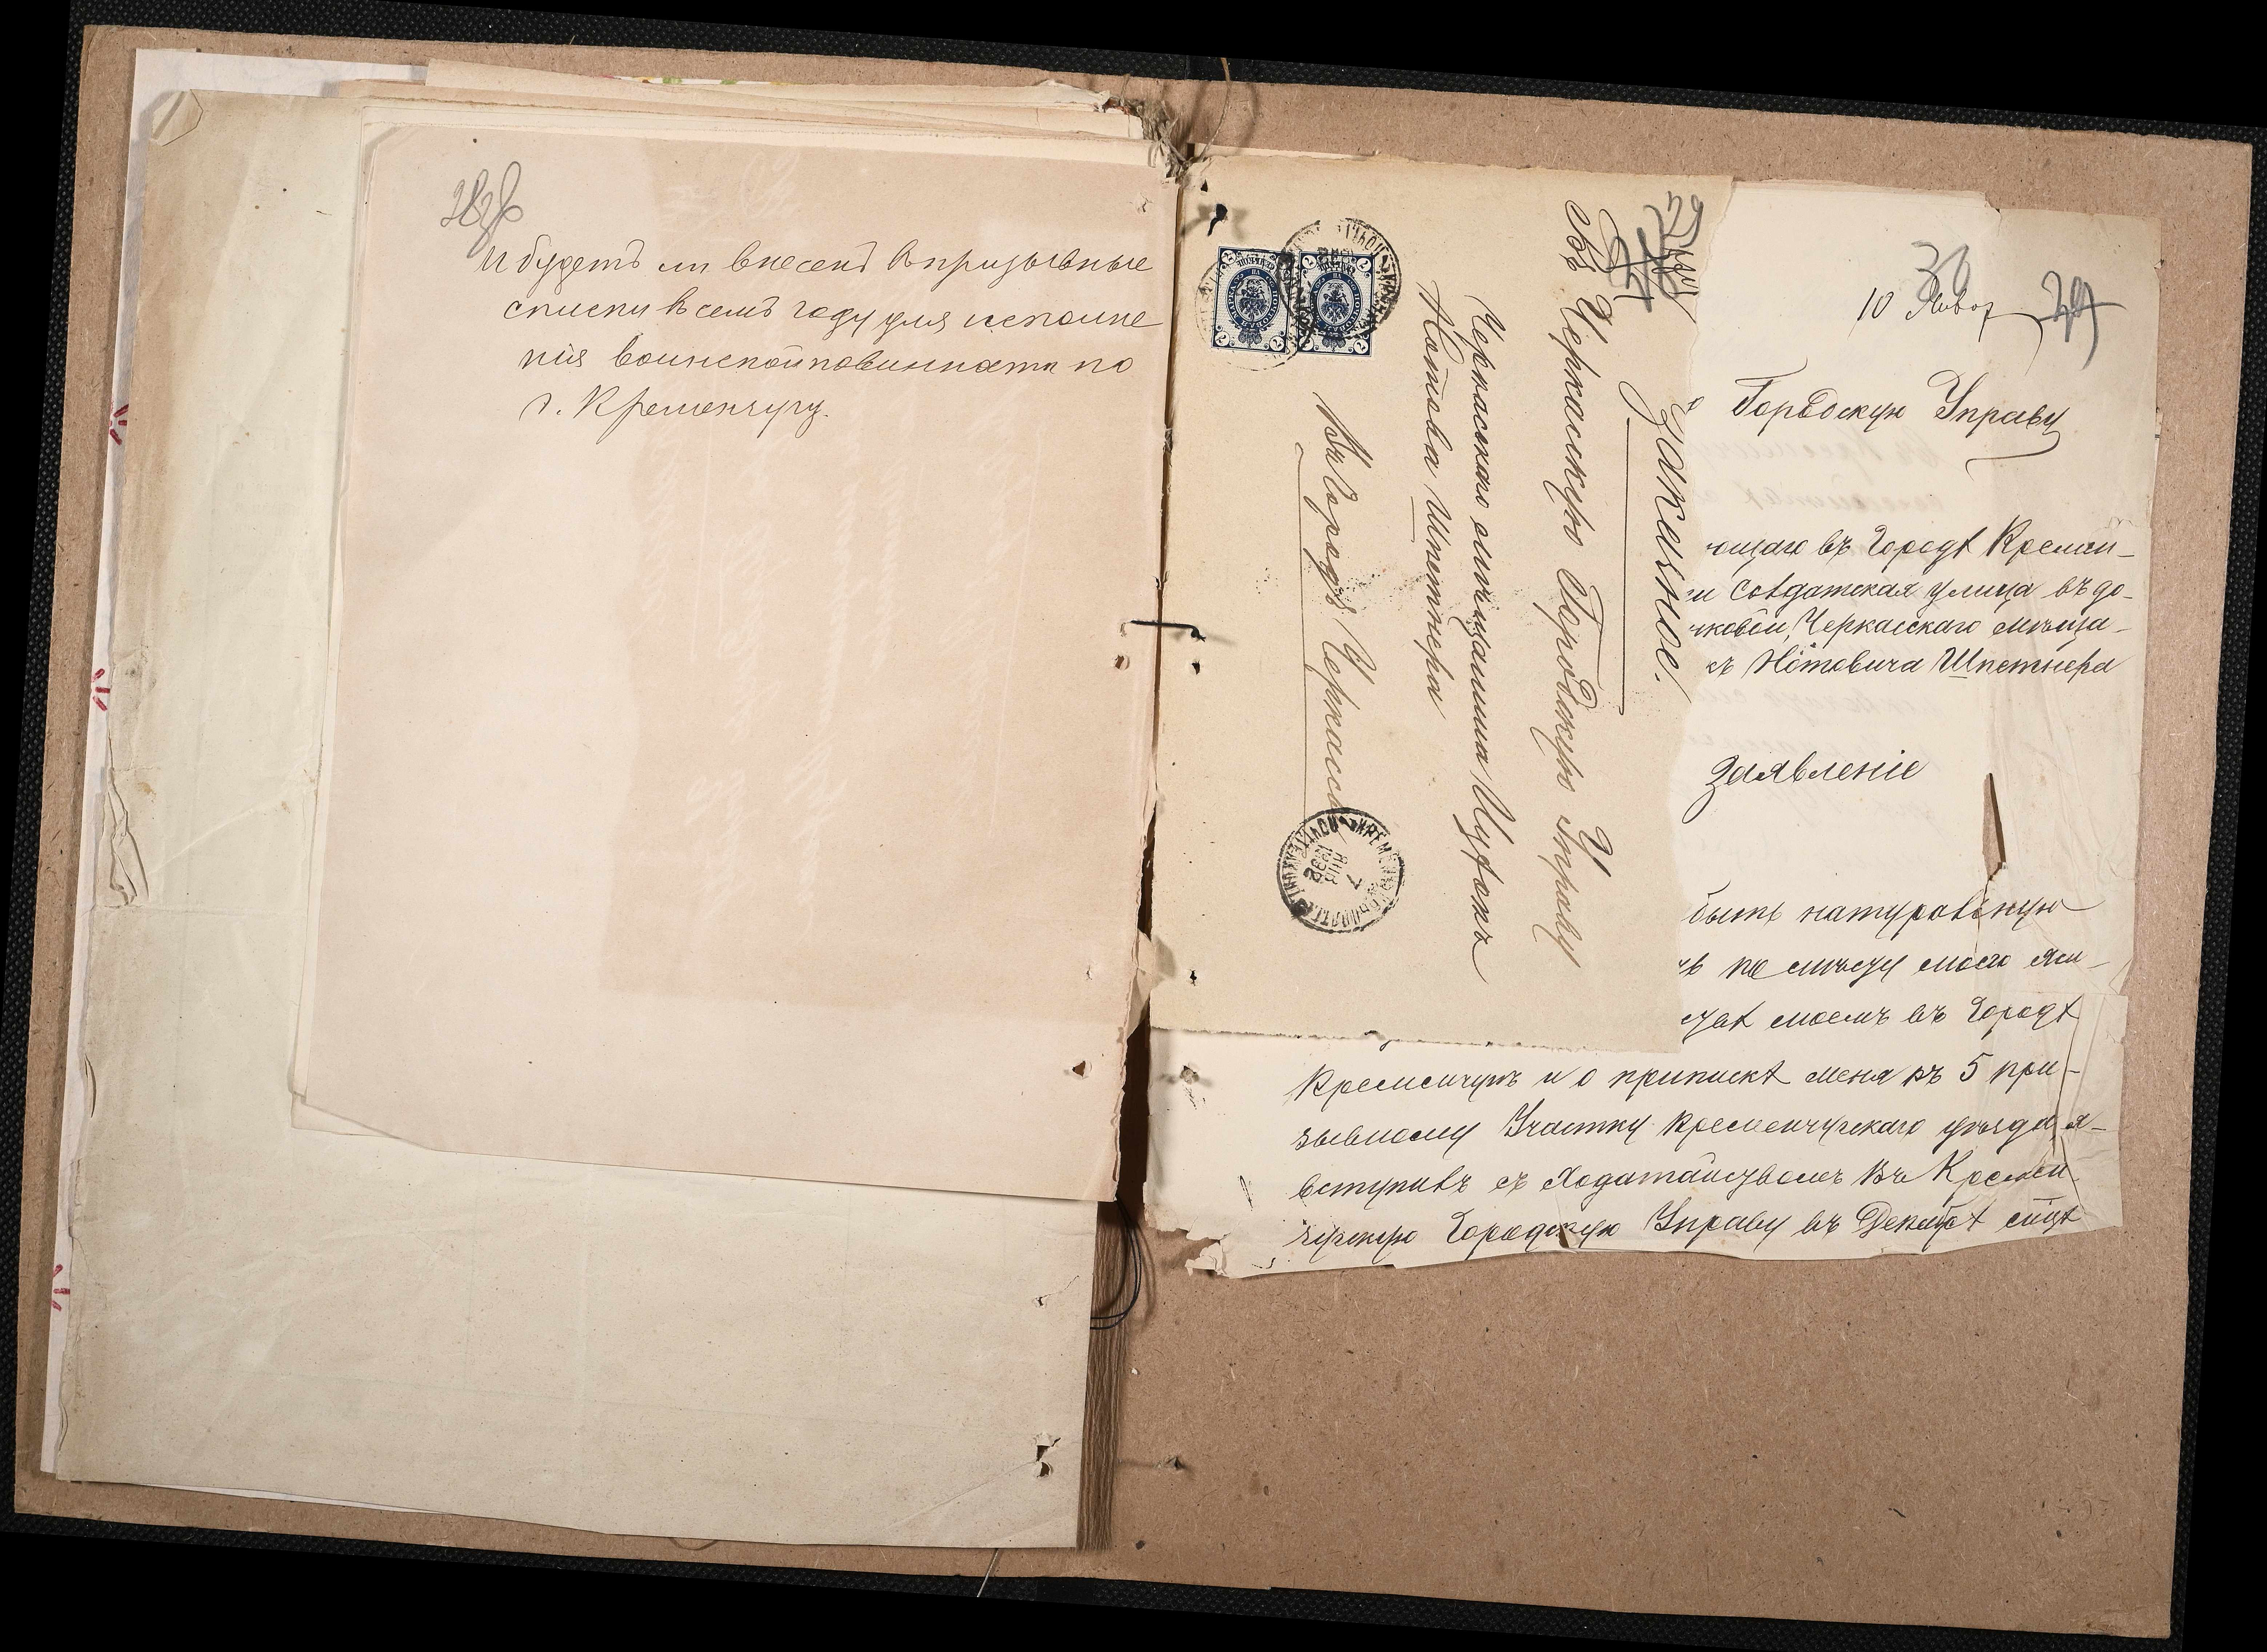 И будетъ ли внесенъ в призывные
списки в семъ году для исполне
нія воинской повинности по
г. Кременчугу.
Заказное.
Въ Черкасскую Городскую Управу
Черкасскаго мѣщанина Ицфокъ
Нотова Шпетнера
Въ Городъ Черкассы
7
ЯНВ
1892
10 Январ
30
29
Городскую Управу
ющаго въ Городѣ Кремен-
Солдатская улица въ до-
Черкасскаго мѣща-
Нотовича Шпетнера
Заявленіе
быть натуральную
по мѣсту моего жи-
моемъ въ Городѣ
Кременчугъ и о припискѣ меня къ 5 при-
зывному Участку Кременчугскаго уѣзда я
вступивъ съ Ходатайствомъ въ Кремен
чугскую Городскую Управу въ Декабрѣ